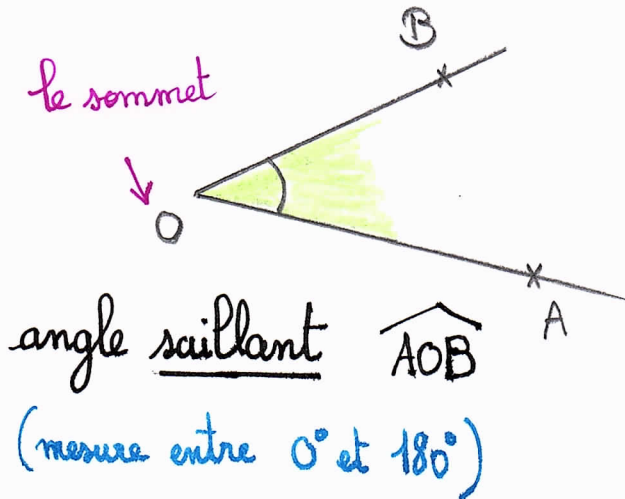 B
le sommet
O
A
angle saillant AOB
(mesure entre 0° et 180°)